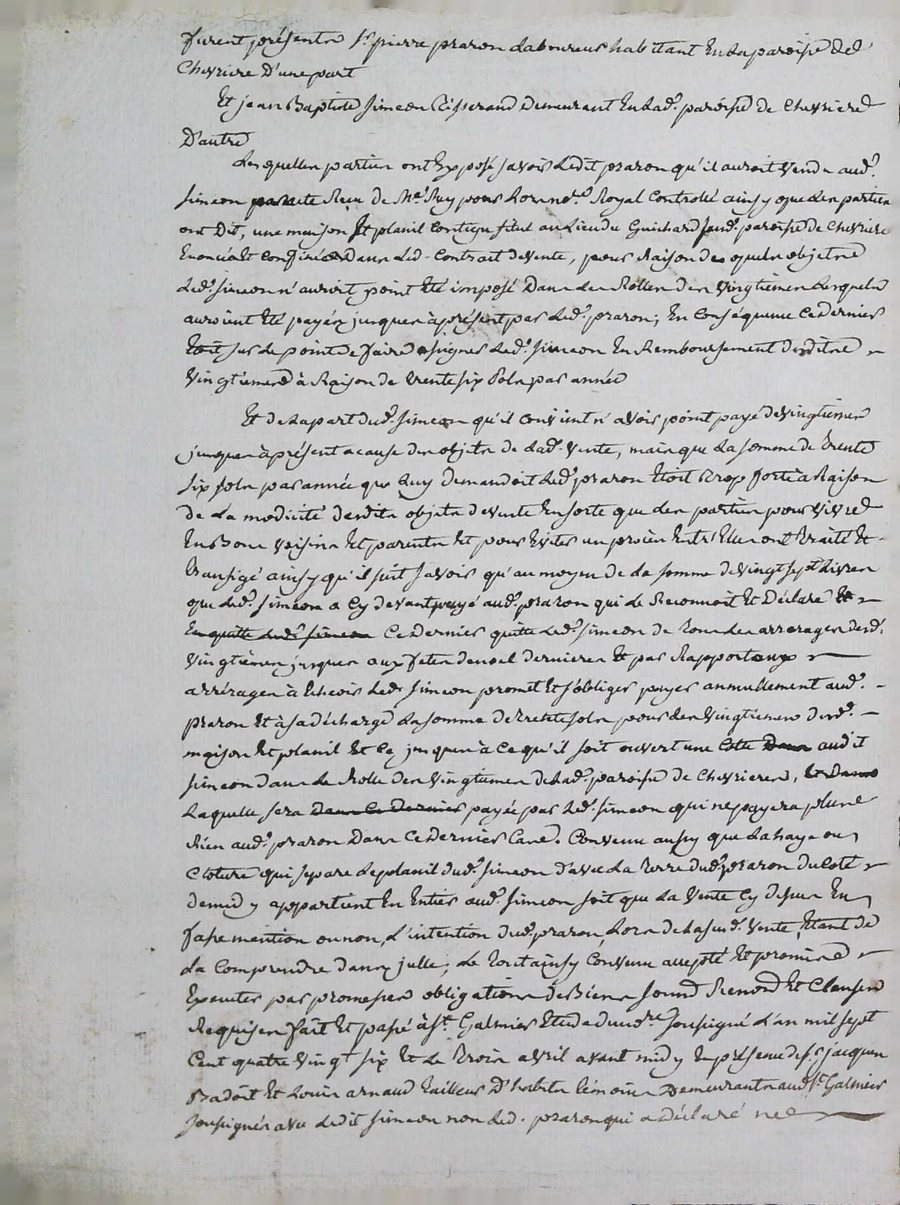 furent présents Sr pierre prazon laboureur habitant En la paroisse de
Chevriere D'une part
Et jean Baptiste Simeon Tisserand Demeurant En lad. paroisse de Chevriere
D'autre
Lesquelles parties ont Exposé savoir ledit prazon qu'il auroit vendu aud.
Simeon par acte Reçu de Me Puy pour Lors nre Royal Controlé ainsy que les parties
ont Dit, une maison Et plassil contigu situé au Lieu du Guichard susd. paroisse de Chevriere
Enoncés Et Confinés Dans led. Contrat de vente, pour Raison desquels objets
led. Simeon n'auroit point Eté imposé Dans les Rolles des Vingtiemes lesquels
auroient Eté payés jusques à présent par led. prazon; En Conséquence Ce Dernier
Etoit sur le point de faire assigner led. Simeon En Remboursement desdits
Vingtiemes à Raison de trente six Sols par année
Et de la part dud. Simeon qu'il Convient n'avoir point payé de vingtiemes
jusques à présent a cause des objets de lad. vente, mais que la somme de trente
six sols par année que luy demandoit led. prazon Etoit trop forte à Raison
de La modicité desdits objets de vente En sorte que les parties pour vivre
En Bons Voisins Et parents Et pour Eviter un procès Entr'Elles ont traité Et
transigé ainsy qu'il suit savoir qu'au moyen de la somme de vingt sept Livres
que led. Simeon a Cy devant payé aud. prazon qui le Reconnoit Et Déclare Et
En quitte led. Simeon Ce Dernier quitte led. Simeon de tous les arrerages desd.
Vingtiemes jusques aux fetes de noel dernieres Et par Rapport aux
arrérages à Echeoir led. Simeon promet Et s'obliger payer annuellement aud.
prazon Et à sa décharge La somme de trente sols pour les Vingtiemes desd.
maison Et plassil Et Ce jusques à Ce qu'il soit ouvert une Cote Dans audit
Simeon dans le Rolle des Vingtiemes de lad. paroisse de Chevrieres, Et Dans
Laquelle sera Dans Ce Dernier payée par led. Simeon qui ne payera plus
Rien aud. prazon Dans Ce Dernier Cas. Convenu aussy que La haye ou
Cloture qui separe le plassil dud. Simeon d'avec La terre dud. prazon du Coté
de midy appartient En Entier aud. Simeon soit que La Vente Cy dessus En
fasse mention ou non, L'intention dud. prazon, Lors de la susd. vente, Etant de
La Comprendre dans jcelle; Le tout ainsy Convenu accepté Et promis
Executer par promesses obligations de Biens soumd Renond Et Clauses
Requises fait Et passé à St Galmier Etude du nre soussigné L'an mil sept
Cent quatre vingt six Et Le trois avril avant midy En présence des Srs jacques
Badoit Et Louis arnaud tailleur D'habits témoins Demeurants aud. St Galmier
soussignés avec ledit Simeon non led. prazon qui a Déclaré ne